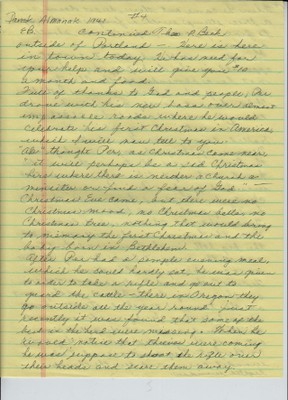 Farm Almanak 1941 #4
P.B. Continued Thor P. Bech
outside of Portland — Fere is here
in town today. He has need for
your help and will give you $10
a month and food."
Full of thanks to God and people, Per
drove with his new boss over almost
impassable roads where he would
celebrate his first Christmas in America,
which I will now tell to you.
As I thought Per, as Christmas came near
it will perhaps be a sad Christmas
here where there is neither a church a
minister or find a fear of God." —
Christmas Eve came, but there were no
Christmas mood, no Christmas bells, no
Christmas tree, nothing that would bring
to memory the first Christmas and the
baby born in Bethlehem.
After Per had a simple evening meal,
which he could hardly eat, he was given
to order to take a rifle and go out to
guard the cattle — there in Oregon they
go outside all the year round. Just
recently it was found that some of the
best in the herd were missing. When he
received notice that thieves were coming
he was suppose to shoot the rifle over
their heads and scare them away.